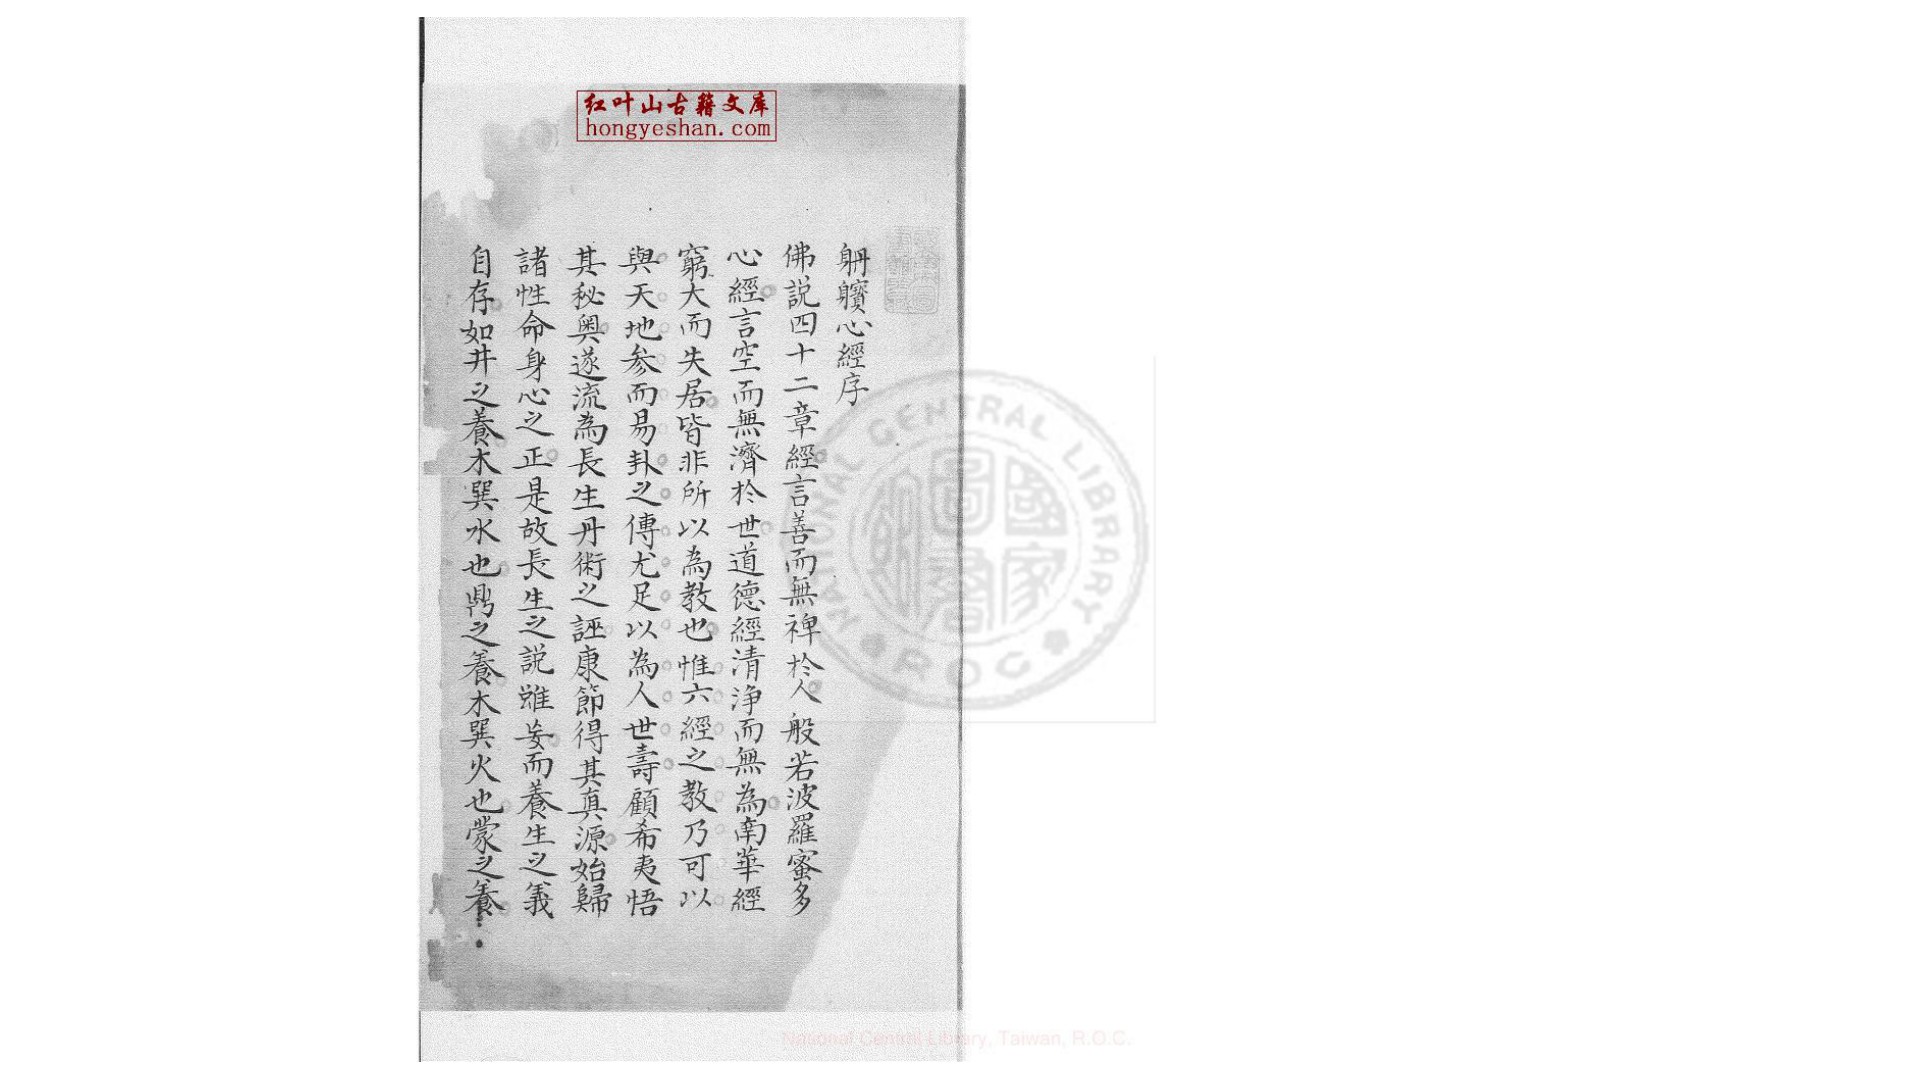 红叶山古籍文库
hongyeshan.com
心經序
佛説四十二章經言善而無裨於人般若波羅蜜多
心經言空而無濟於世道德經清浄而無為南華經
窮大而失居皆非所以為教也惟六經之教乃可以
與天地参而易卦之傳尤足以為人世壽顧希夷悟
其秘奥遂流為長生丹術之誣康節得其真源始歸
諸性命身心之正是故長生之説雖妄而養生之義
自存如井之養木巽水也鼎之養木巽火也蒙之養
NATIONAL CENTRAL LIBRARY
ROC
國家圖書
National Central Library, Taiwan, R.O.C.